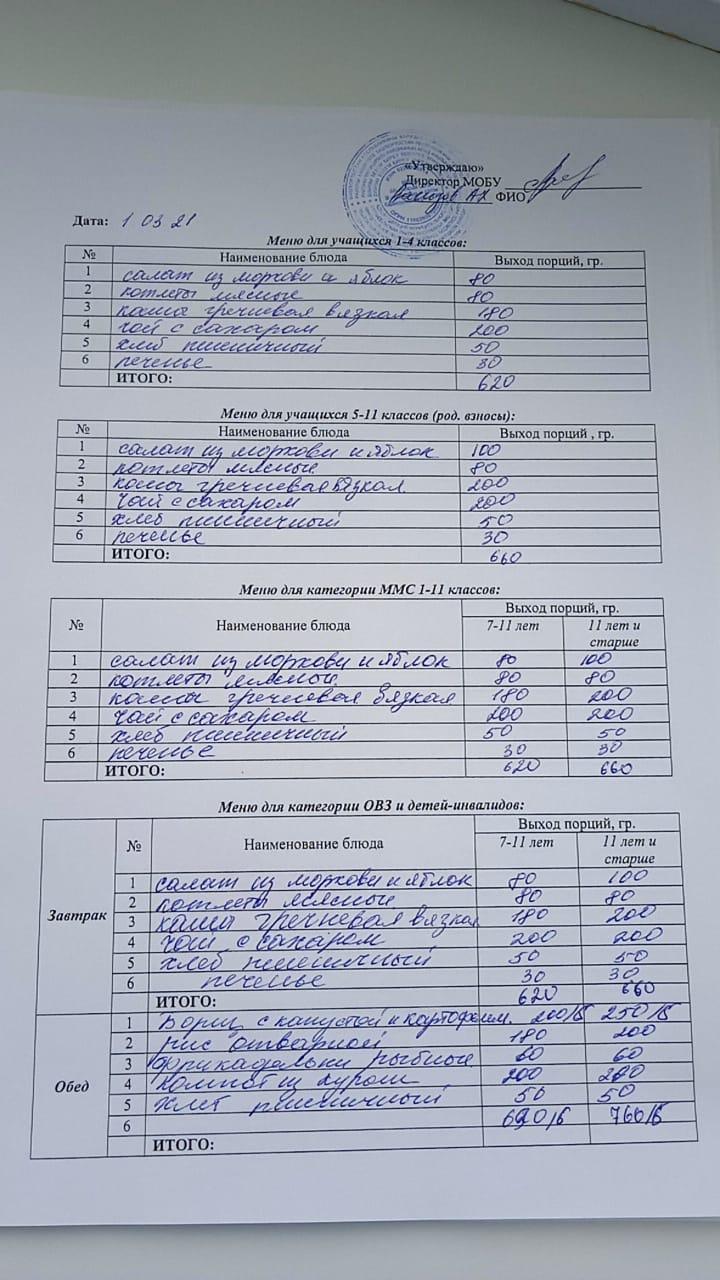 «Утверждаю»
Директор МОБУ
ФИО
Дата: 1 03 21
Меню для учащихся 1-4 классов:
№ Наименование блюда Выход порций, гр.
1 салат из моркови и яблок 80
2 котлеты мясные 80
3 каша гречневая вязкая 180
4 чай с сахаром 200
5 хлеб пшеничный 50
6 печенье 30
ИТОГО: 620
Меню для учащихся 5-11 классов (род. взносы):
№ Наименование блюда Выход порций , гр.
1 салат из моркови и яблок 100
2 котлеты мясные 80
3 каша гречневая вязкая 200
4 чай с сахаром 200
5 хлеб пшеничный 50
6 печенье 30
ИТОГО: 660
Меню для категории ММС 1-11 классов:
№ Наименование блюда Выход порций, гр.
7-11 лет 11 лет и
старше
1 салат из моркови и яблок 80 100
2 котлеты мясные 80 80
3 каша гречневая вязкая 180 200
4 чай с сахаром 200 200
5 хлеб пшеничный 50 50
6 печенье 30 30
ИТОГО: 620 660
Меню для категории ОВЗ и детей-инвалидов:
№ Наименование блюда Выход порций, гр.
7-11 лет 11 лет и
старше
Завтрак
1 салат из моркови и яблок 80 100
2 котлеты мясные 80 80
3 каша гречневая вязкая 180 200
4 чай с сахаром 200 200
5 хлеб пшеничный 50 50
6 печенье 30 30
ИТОГО: 620 660
Обед
1 Борщ с капустой и картофелем. 200/5 250/5
2 Рис отварной 180 200
3 Фрикадельки рыбные 60 60
4 Компот из 200 200
5 Хлеб пшеничный 50 50
6 760/5
ИТОГО: